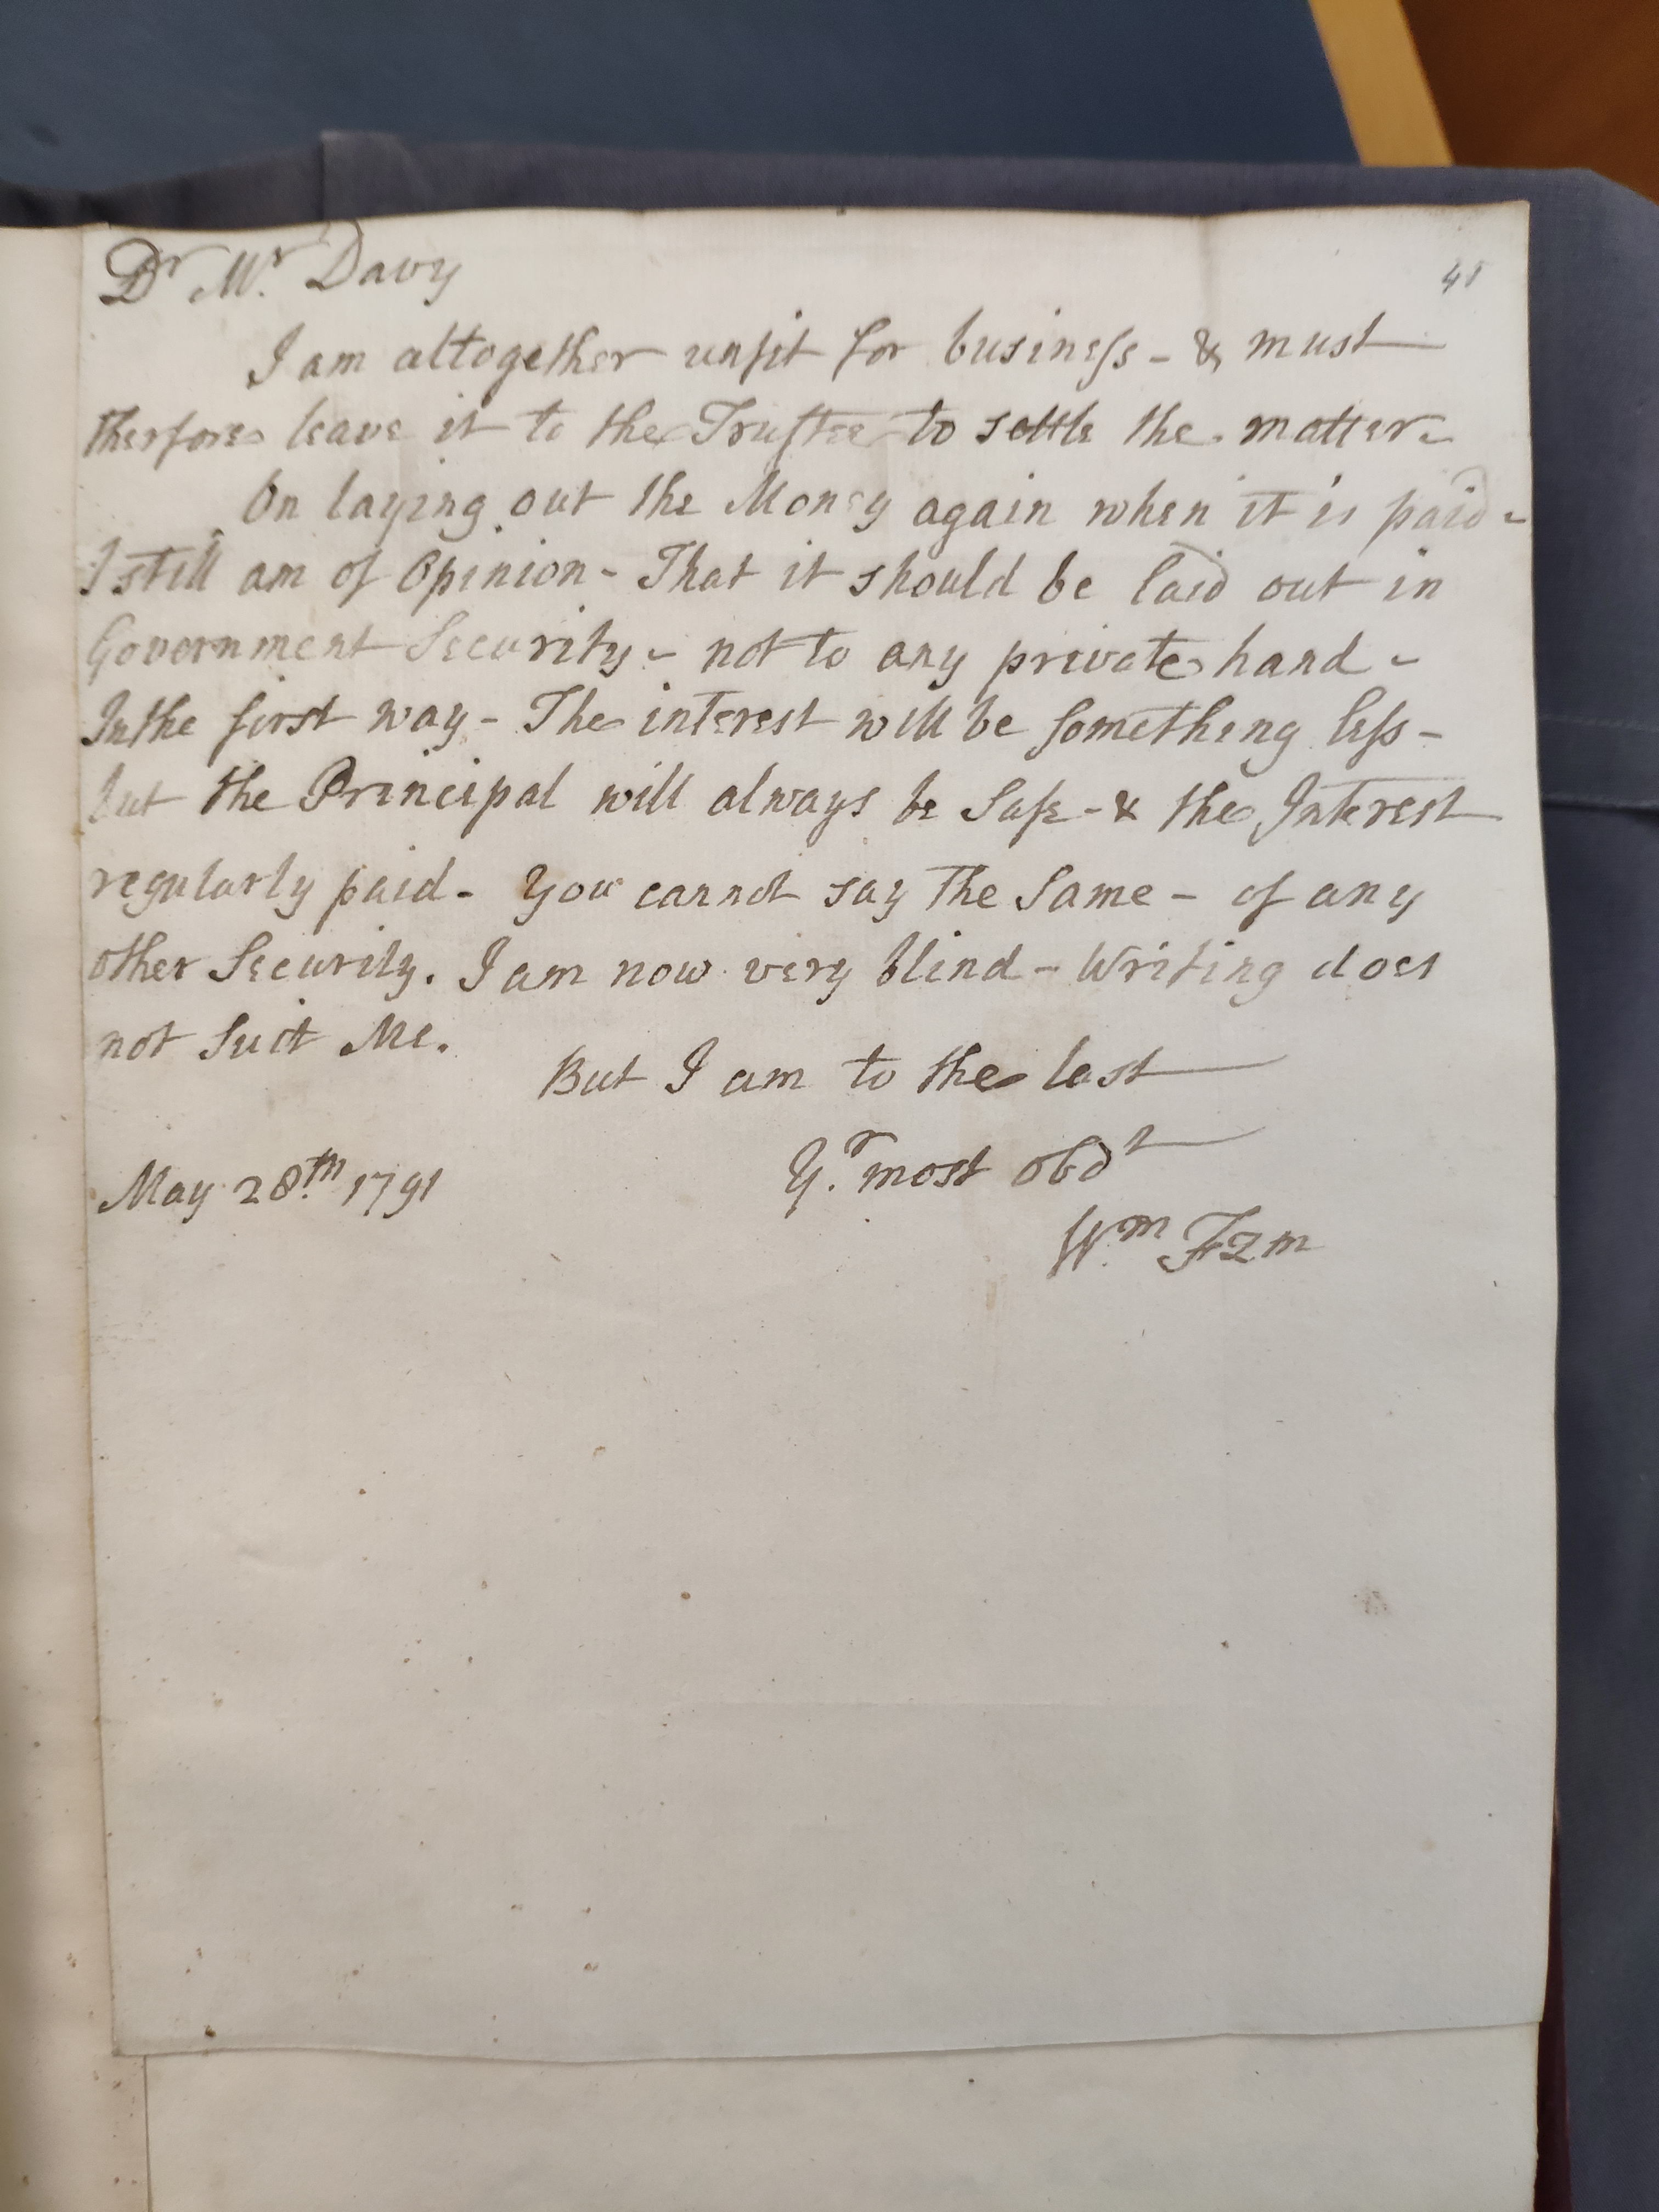 Dr Mr. Davy
45
I am altogether unfit for business - & must
therfore leave it to the Trustee to settle the matter -
On laying out the Money again when it is paid -
I still am of Opinion - That it should be laid out in
Government Security - not to any private hand -
In the first way - The interest will be something less -
but the Principal will always be Safe - & the Interest
regularly paid - You cannot say The Same - of any
other Security. I am now very blind - Writing does
not Suit Me.
But I am to the last
Yr. most obdt
May 28th. 1791
Wm. Fzm